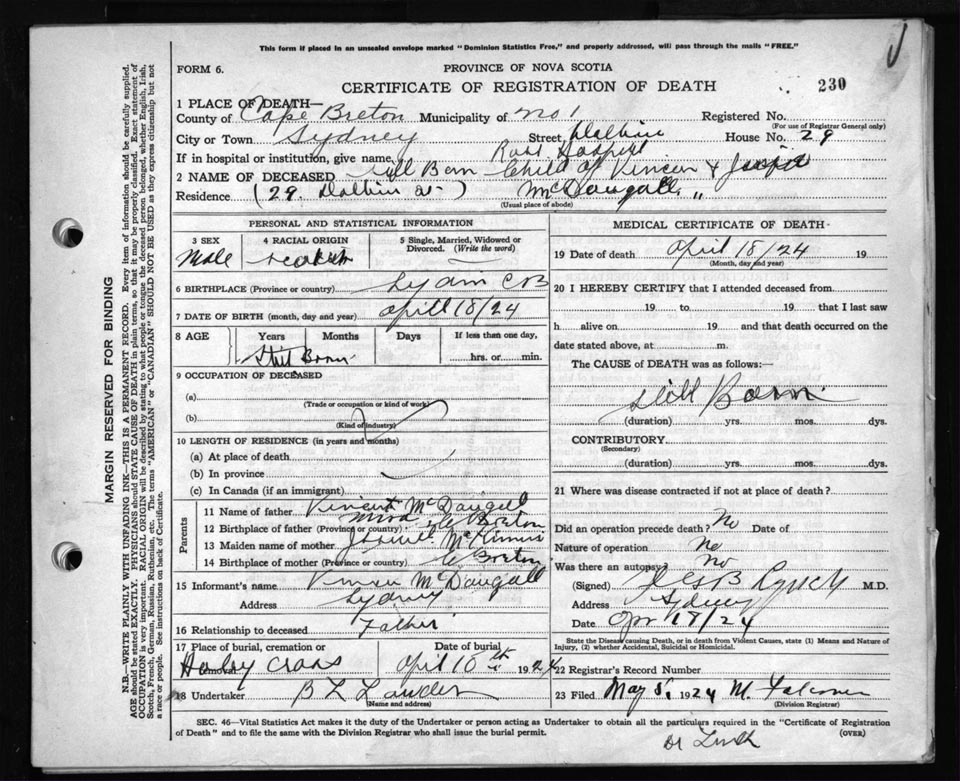 This form if placed in an unsealed envelope marked "Dominion Statistics Free," and properly addressed, will pass through the mails "FREE."
FORM 6.
PROVINCE OF NOVA SCOTIA
CERTIFICATE OF REGISTRATION OF DEATH
230
1 PLACE OF DEATH—
County of Cape Breton Municipality of No 1 Registered No.
(For use of Registrar General only)
City or Town Sydney Street House No. 29
If in hospital or institution, give name Ross
2 NAME OF DECEASED Still Born Child of &
McDougall "
Residence (29. St)
(Usual place of abode)
PERSONAL AND STATISTICAL INFORMATION
3 SEX
Male
4 RACIAL ORIGIN
5 Single, Married, Widowed or Divorced. (Write the word)
6 BIRTHPLACE (Province or country) CB
7 DATE OF BIRTH (month, day and year) April 18/24
8 AGE Years Months Days If less than one day,
Still Born hrs. or min.
9 OCCUPATION OF DECEASED
(a)
(Trade or occupation or kind of work)
(b)
(Kind of industry)
10 LENGTH OF RESIDENCE (in years and months)
(a) At place of death
(b) In province
(c) In Canada (if an immigrant)
Parents
11 Name of father Vincent McDougall
12 Birthplace of father (Province or country) Mira Breton
13 Maiden name of mother
14 Birthplace of mother (Province or country) Breton
15 Informant's name McDougall
Address Sydney
16 Relationship to deceased Father
17 Place of burial, cremation or removal Date of burial
Cross April 10th 1924
18 Undertaker B L
(Name and address)
MEDICAL CERTIFICATE OF DEATH
19 Date of death April 18/24 19
(Month, day and year)
20 I HEREBY CERTIFY that I attended deceased from
19 to 19 that I last saw
h alive on 19 and that death occurred on the
date stated above, at m.
The CAUSE of DEATH was as follows:
Still Born
(duration) yrs. mos. dys.
CONTRIBUTORY
(Secondary)
(duration) yrs. mos. dys.
21 Where was disease contracted if not at place of death?
Did an operation precede death? No Date of
Nature of operation No
Was there an autopsy? No
(Signed) Lynch M.D.
Address Sydney
Date Apr 18/24
State the Disease causing Death, or in death from Violent Causes, state (1) Means and Nature of Injury, (2) whether Accidental, Suicidal or Homicidal.
22 Registrar's Record Number
23 Filed May 5. 1924 M. Falconer
(Division Registrar)
SEC. 46—Vital Statistics Act makes it the duty of the Undertaker or person acting as Undertaker to obtain all the particulars required in the "Certificate of Registration
of Death" and to file the same with the Division Registrar who shall issue the burial permit. (OVER)
MARGIN RESERVED FOR BINDING
N.B.—WRITE PLAINLY WITH UNFADING INK—THIS IS A PERMANENT RECORD. Every item of information should be carefully supplied.
AGE should be stated EXACTLY. PHYSICIANS should STATE CAUSE OF DEATH in plain terms, so that it may be properly classified. Exact statement of
OCCUPATION is very important. RACIAL ORIGIN will be described by stating to what people or tongue the deceased person belonged, whether English, Irish,
Scotch, French, German, Russian, Ruthenian, etc. The terms "AMERICAN" or "CANADIAN" SHOULD NOT BE USED as they express citizenship but not
a race or people. See instructions on back of Certificate.